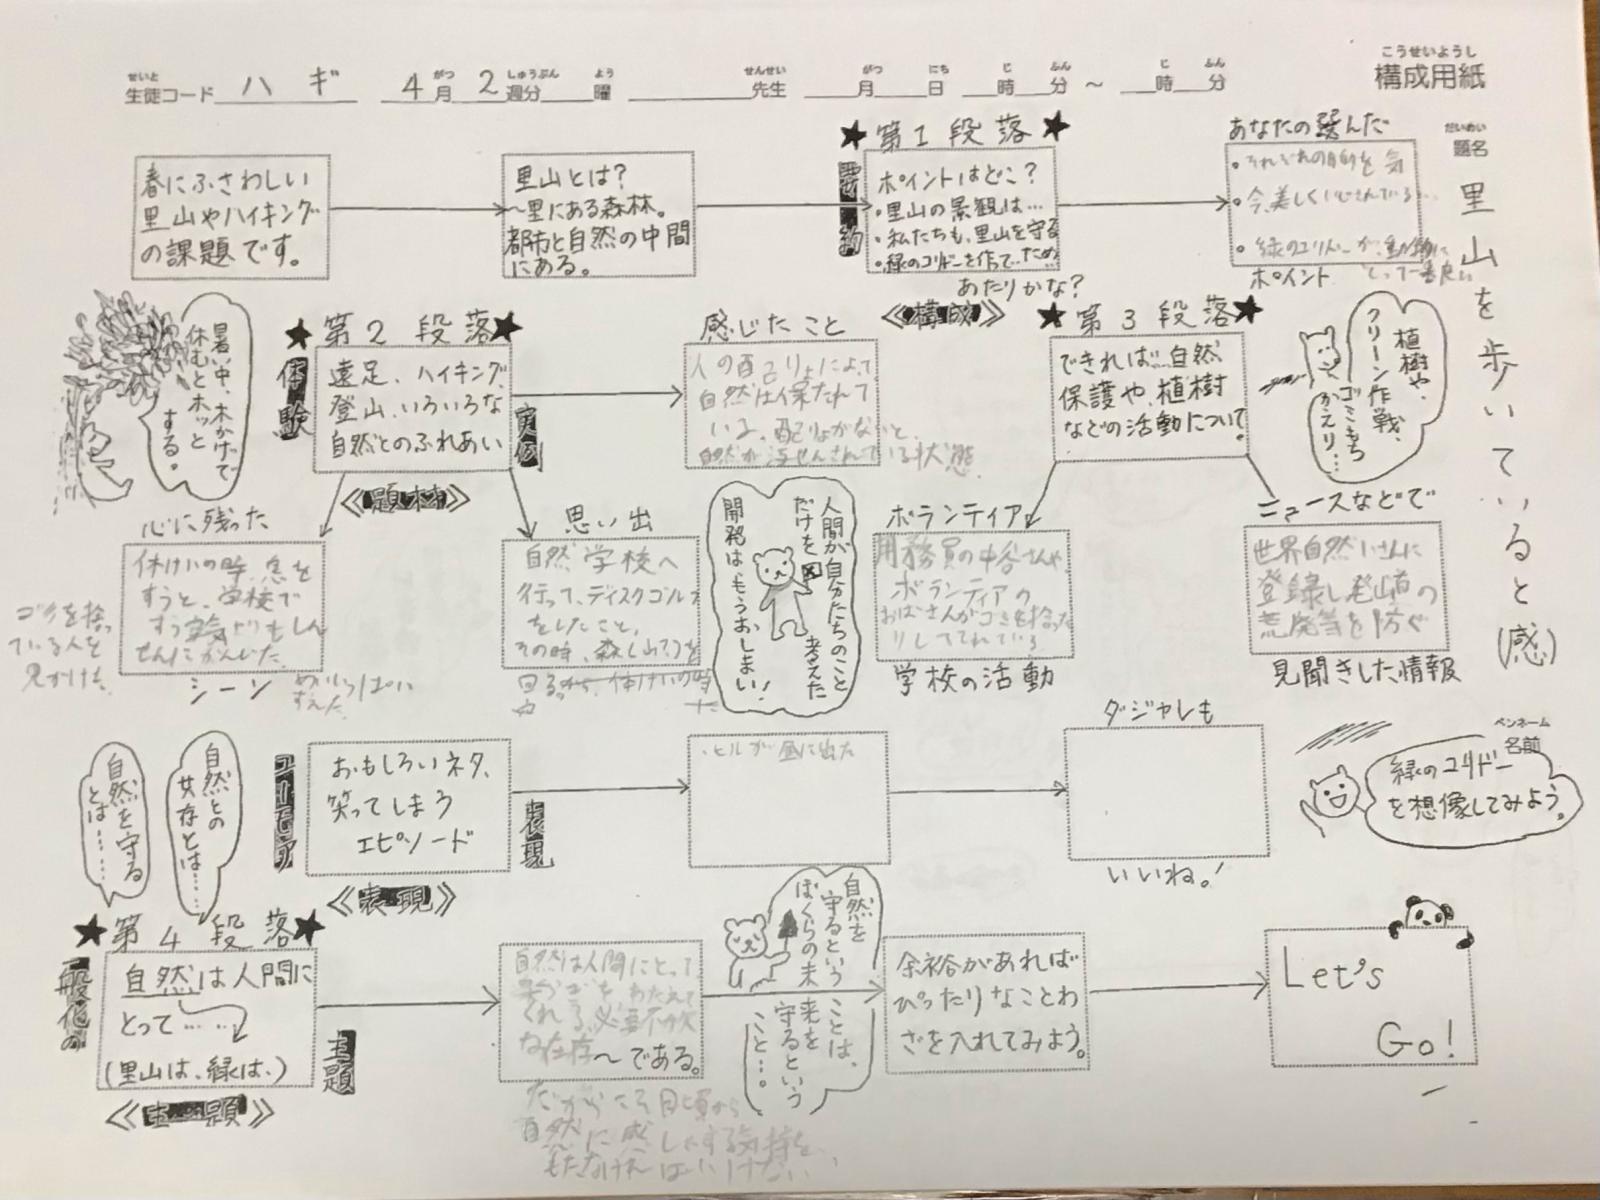 こうせいようし
構成用紙
せいと
生徒コード ハギ 4月 2週分 曜 先生 月 日 時 分 ~ 時 分
がつ しゅうぶん よう せんせい がつ にち じ ふん じ ふん
だいめい
題名
里山を歩いていると(感)
春にふさわしい
里山やハイキング
の課題です。
里山とは?
~里にある森林。
都市と自然の中間
にある。
★第1段落★
要約
ポイントはどこ?
・里山の景観は…
・私たちも、里山を守る
・緑のコリドーを作って、ため
あたりかな?
《構成》
あなたの選んだ
・それぞれの目的を 気
・今、美しく
・緑のコリドーが、動物に
とって一番良い
ポイント
暑い中、木かげで
休むとホッと
する。
★第2段落★
体験
遠足、ハイキング、
登山、いろいろな
自然とのふれあい
実例
《題材》
感じたこと
人の配りょによって、
自然は保たれて
いる。配りょがないと、
自然が されている状態
★第3段落★
できれば…自然
保護や、植樹
などの活動について。
植樹や、
クリーン作戦、
ゴミもち
かえり…
心に残った
休けいの時、息を
すうと、学校で
すう空気よりもしん
せんにかんじた。
シーン
めいいっぱい
すえた。
ゴミを捨っ
ている人を
見かけた。
思い出
自然学校へ
行って、ディスクゴルフ
をしたこと。
その時、森(山?)を
回る
人間が自分たちのこと
だけを考えた
開発は、もうおしまい!
ボランティア
用務員の中谷さんや、
ボランティアの
おばさんがゴミを拾った
りしてくれている。
学校の活動
ニュースなどで
世界自然いさんに
登録し登山道の
荒廃等を防ぐ
見聞きした情報
ペンネーム
名前
緑のコリドー
を想像してみよう。
ユーモア
おもしろいネタ、
笑ってしまう
エピソード
表現
《表現》
・ヒルが昼に出た
ダジャレも
いいね!
自然との
共存とは……
自然を守る
とは……
★第4段落★
一般化の
自然は人間に
とって……
(里山は、緑は、)
主題
《主題》
自然は人間にとって、
をあたえて
くれる、必要不可欠
な存在~である。
だからこそ日頃から
自然に感しゃする気持を
もたなければいけない。
自然を
守るという
ことは、
ぼくらの未
来を
守るという
こと…。
余裕があれば
ぴったりなことわ
ざを入れてみよう。
Let's
Go!